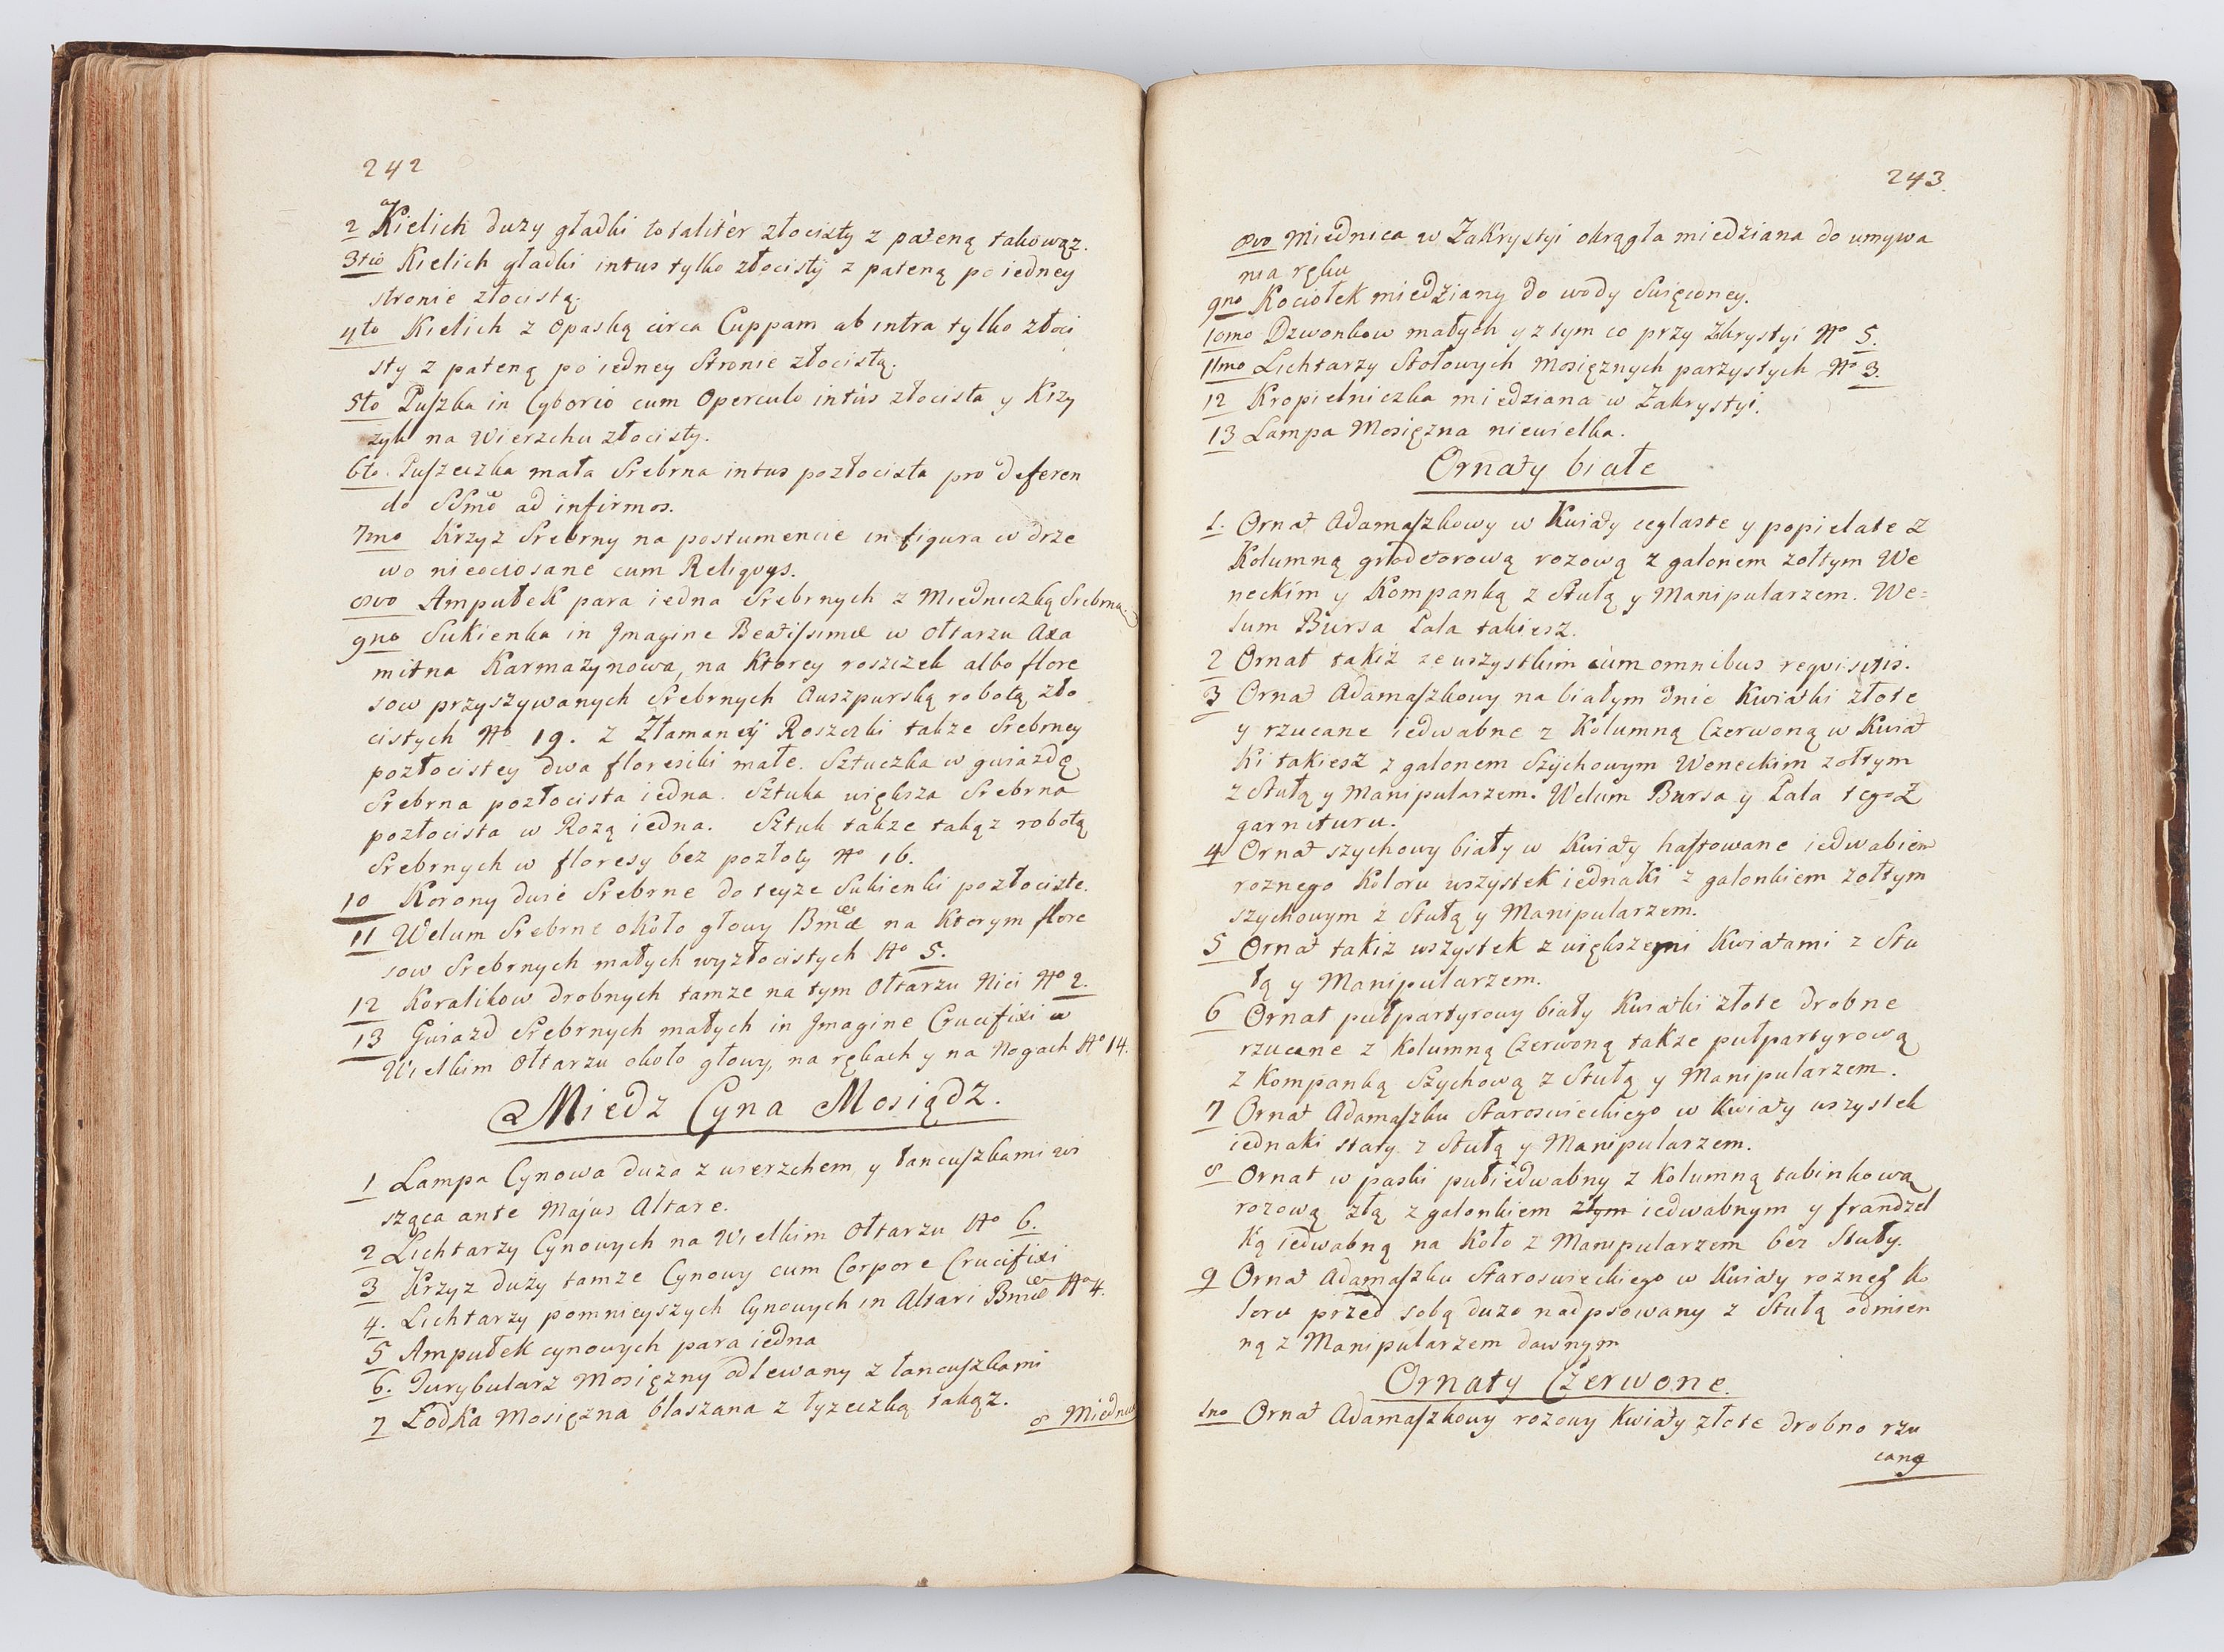 242
2 Kielich duzy gładki totalitèr złocisty z pateną takowąz.
3tio Kielich gładki intus tylko złocisty z pateną po iedney
stronie złocistą.
4to Kielich z opaską circa Cuppam ab intra tylko złoci
sty z pateną po iedney Stronie złocistą.
5to Puszka in Cyborio cum Operculo intùs złocista y Krzy
zyk na Wierzchu złocisty.
6to. Puszeczka mała Srebrna intus pozłocista pro deferen
do SSmo ad infirmos.
7mo Krzyz Srebrny na postumencie in figura w drze
wo nieociosane cum Reliqvys.
8vo Ampułek para iedna Srebrnych z Miedniczką Srebrną.
9no Sukienka in Jmagine Beatissimæ w ołtarzu Axa
mitna Karmazynowa, na Ktorey roszczek albo flore
sow przyszywanych Srebrnych Auszpurską robotą zło
cistych No 19. z Złamaney Roszczki takze Srebrney
pozłocistey dwa floresiki małe. Sztuczka w gwiazdę
Srebrna pozłocista iedna. Sztuka większa Srebrna
pozłocista w Rozą iedna. Sztuk takze takąz robotą
Srebrnych w floresy bez pozłoty No 16.
10 Korony dwie Srebrne do teyze Sukienki pozłociste.
11 Welum Srebrne około głowy Bmæ na Ktorym flore
sow Srebrnych małych wyzłocistych No 5.
12 Koralikow drobnych tamze na tym Ołtarzu Nici No 2.
13 Gwiazd Srebrnych małych in Jmagine Crucifixi w
Wielkim Ołtarzu około głowy, na rękach y na Nogach No 14.
Miedz Cyna Mosiądz.
1 Lampa Cynowa duza z wierzchem y łancuszkami wi
sząca ante Majus Altare.
2 Lichtarzy Cynowych na Wielkim Ołtarzu No 6.
3 Krzyz duży tamze Cynowy cum Corpore Crucifixi
4. Lichtarzy pomnieyszych Cynowych in Altari Bmæ No 4.
5 Ampułek cynowych para iedna
6. Turybularz Mosięzny odlewany z łancuszkami
7 Łodka Mosięzna blaszana z łyzeczką takąz.
8 Miednica
243.
8vo Miednica w Zakrystyi okrągła miedziana do umywa
nia ręku
9no Kociołek miedziany do wody Swięconey.
10mo Dzwonkow małych y z tym co przy Zkrystyi No 5.
11mo Lichtarzy Stołowych Mosięznych parzystych No 3.
12 Kropielniczka miedziana w Zakrystyi.
13 Lampa Mosięzna niewielka.
Ornaty białe
1. Ornat Adamaszkowy w Kwiaty ceglaste y popielate z
Kolumną grodetorową rozową z galonem zołtym We
neckim y Kompanką z Stułą y Manipularzem. We=
lum Bursa Pala takiesz.
2 Ornat takiż ze wszystkim cùm omnibus reqvisitis.
3 Ornat Adamaszkowy na białym dnie Kwiatki złote
y rzucane iedwabne z Kolumną Czerwoną w Kwiat
ki takiesz z galonem Szychowym Weneckim zołtym
z Stułą y Manipularzem. Welum Bursa y Pala tegoz
garnituru.
4 Ornat szychowy biały w Kwiaty haftowane iedwabiem
roznego Koloru wszystek iednaki z galonkiem zołtym
szychowym z Stułą y Manipularzem.
5 Ornat takiz wszystek z większemi Kwiatami z Stu
łą y Manipularzem.
6 Ornat pułpartyrowy biały Kwiatki złote drobne
rzucane z Kolumną Czerwoną takze pułpartyrową
z Kompanką Szychową z Stułą y Manipularzem.
7 Ornat Adamaszku Staroswieckiego w Kwiaty wszystek
iednaki stary z Stułą y Manipularzem.
8 Ornat w paski pułiedwabny z Kolumną tabinkową
rozową złą z galonkiem złym iedwabnym y frandzel
ką iedwabną na Koło z Manipularzem bez Stuły.
9 Ornat Adamaszku Staroswieckiego w Kwiaty rozneg Ko
loru przed sobą duzo nadpsowany z Stułą odmien
ną z Manipularzem dawnym
Ornaty Czerwone.
1no Ornat Adamaszkowy rozowy Kwiaty złote drobno rzu
cane